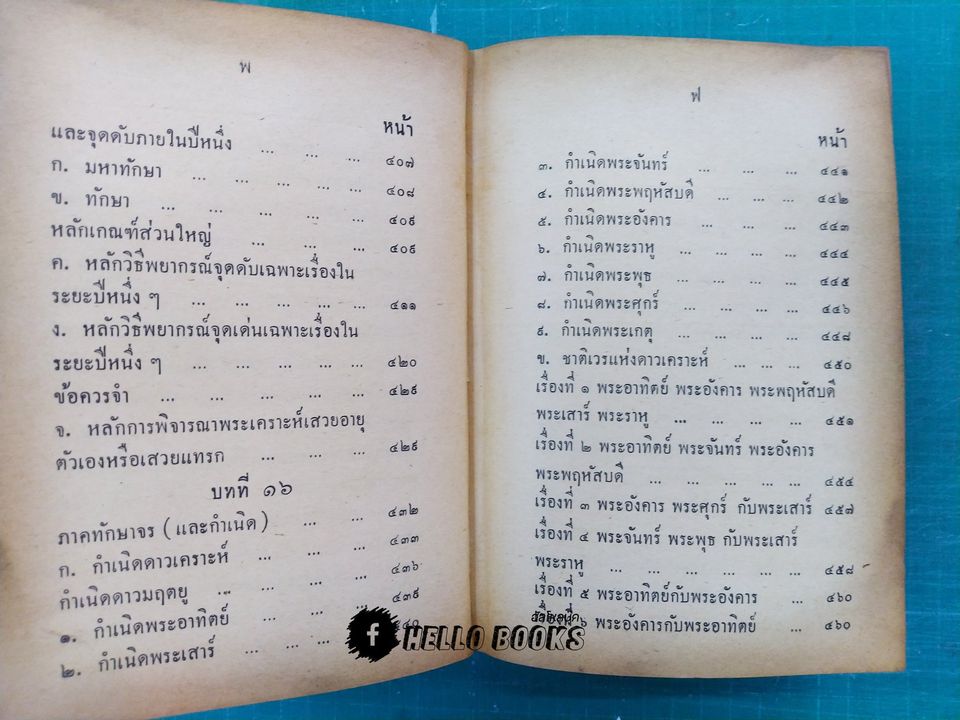 พ
หน้า
และจุดดับภายในปีหนึ่ง ... ... ... ๔๐๗
ก. มหาทักษา ... ... ... ... ... ๔๐๘
ข. ทักษา ... ... ... ... ... ๔๐๙
หลักเกณฑ์ส่วนใหญ่ ... ... ... ๔๐๙
ค. หลักวิธีพยากรณ์จุดดับเฉพาะเรื่องใน
ระยะปีหนึ่ง ๆ ... ... ... ... ... ๔๑๑
ง. หลักวิธีพยากรณ์จุดเด่นเฉพาะเรื่องใน
ระยะปีหนึ่ง ๆ ... ... ... ... ... ๔๒๐
ข้อควรจำ ... ... ... ... ... ๔๒๙
จ. หลักการพิจารณาพระเคราะห์เสวยอายุ
ตัวเองหรือเสวยแทรก ... ... ... ๔๒๙
บทที่ ๑๖
ภาคทักษาจร (และกำเนิด) ... ... ๔๓๒
ก. กำเนิดดาวเคราะห์ ... ... ... ๔๓๓
กำเนิดดาวมฤตยู ... ... ... ... ๔๓๖
๑. กำเนิดพระอาทิตย์ ... ... ... ๔๓๙
๒. กำเนิดพระเสาร์ ... ... ๔๔๐
ฟ
หน้า
๓. กำเนิดพระจันทร์ ... ... ... ๔๔๑
๔. กำเนิดพระพฤหัสบดี ... ... ... ๔๔๒
๕. กำเนิดพระอังคาร ... ... ... ๔๔๓
๖. กำเนิดพระราหู ... ... ... ... ๔๔๔
๗. กำเนิดพระพุธ ... ... ... ... ๔๔๕
๘. กำเนิดพระศุกร์ ... ... ... ... ๔๔๖
๙. กำเนิดพระเกตุ ... ... ... ... ๔๔๘
ข. ชาติเวรแห่งดาวเคราะห์ ... ... ... ๔๕๐
เรื่องที่ ๑ พระอาทิตย์ พระอังคาร พระพฤหัสบดี
พระเสาร์ พระราหู ... ... ... ... ๔๕๑
เรื่องที่ ๒ พระอาทิตย์ พระจันทร์ พระอังคาร
พระพฤหัสบดี ... ... ... ... ... ๔๕๔
เรื่องที่ ๓ พระอังคาร พระศุกร์ กับพระเสาร์ ๔๕๗
เรื่องที่ ๔ พระจันทร์ พระพุธ กับพระเสาร์
พระราหู ... ... ... ... ... ... ๔๕๘
เรื่องที่ ๕ พระอาทิตย์กับพระอังคาร ... ๔๖๐
๖ พระอังคารกับพระอาทิตย์ ... ๔๖๐
f HELLO BOOKS